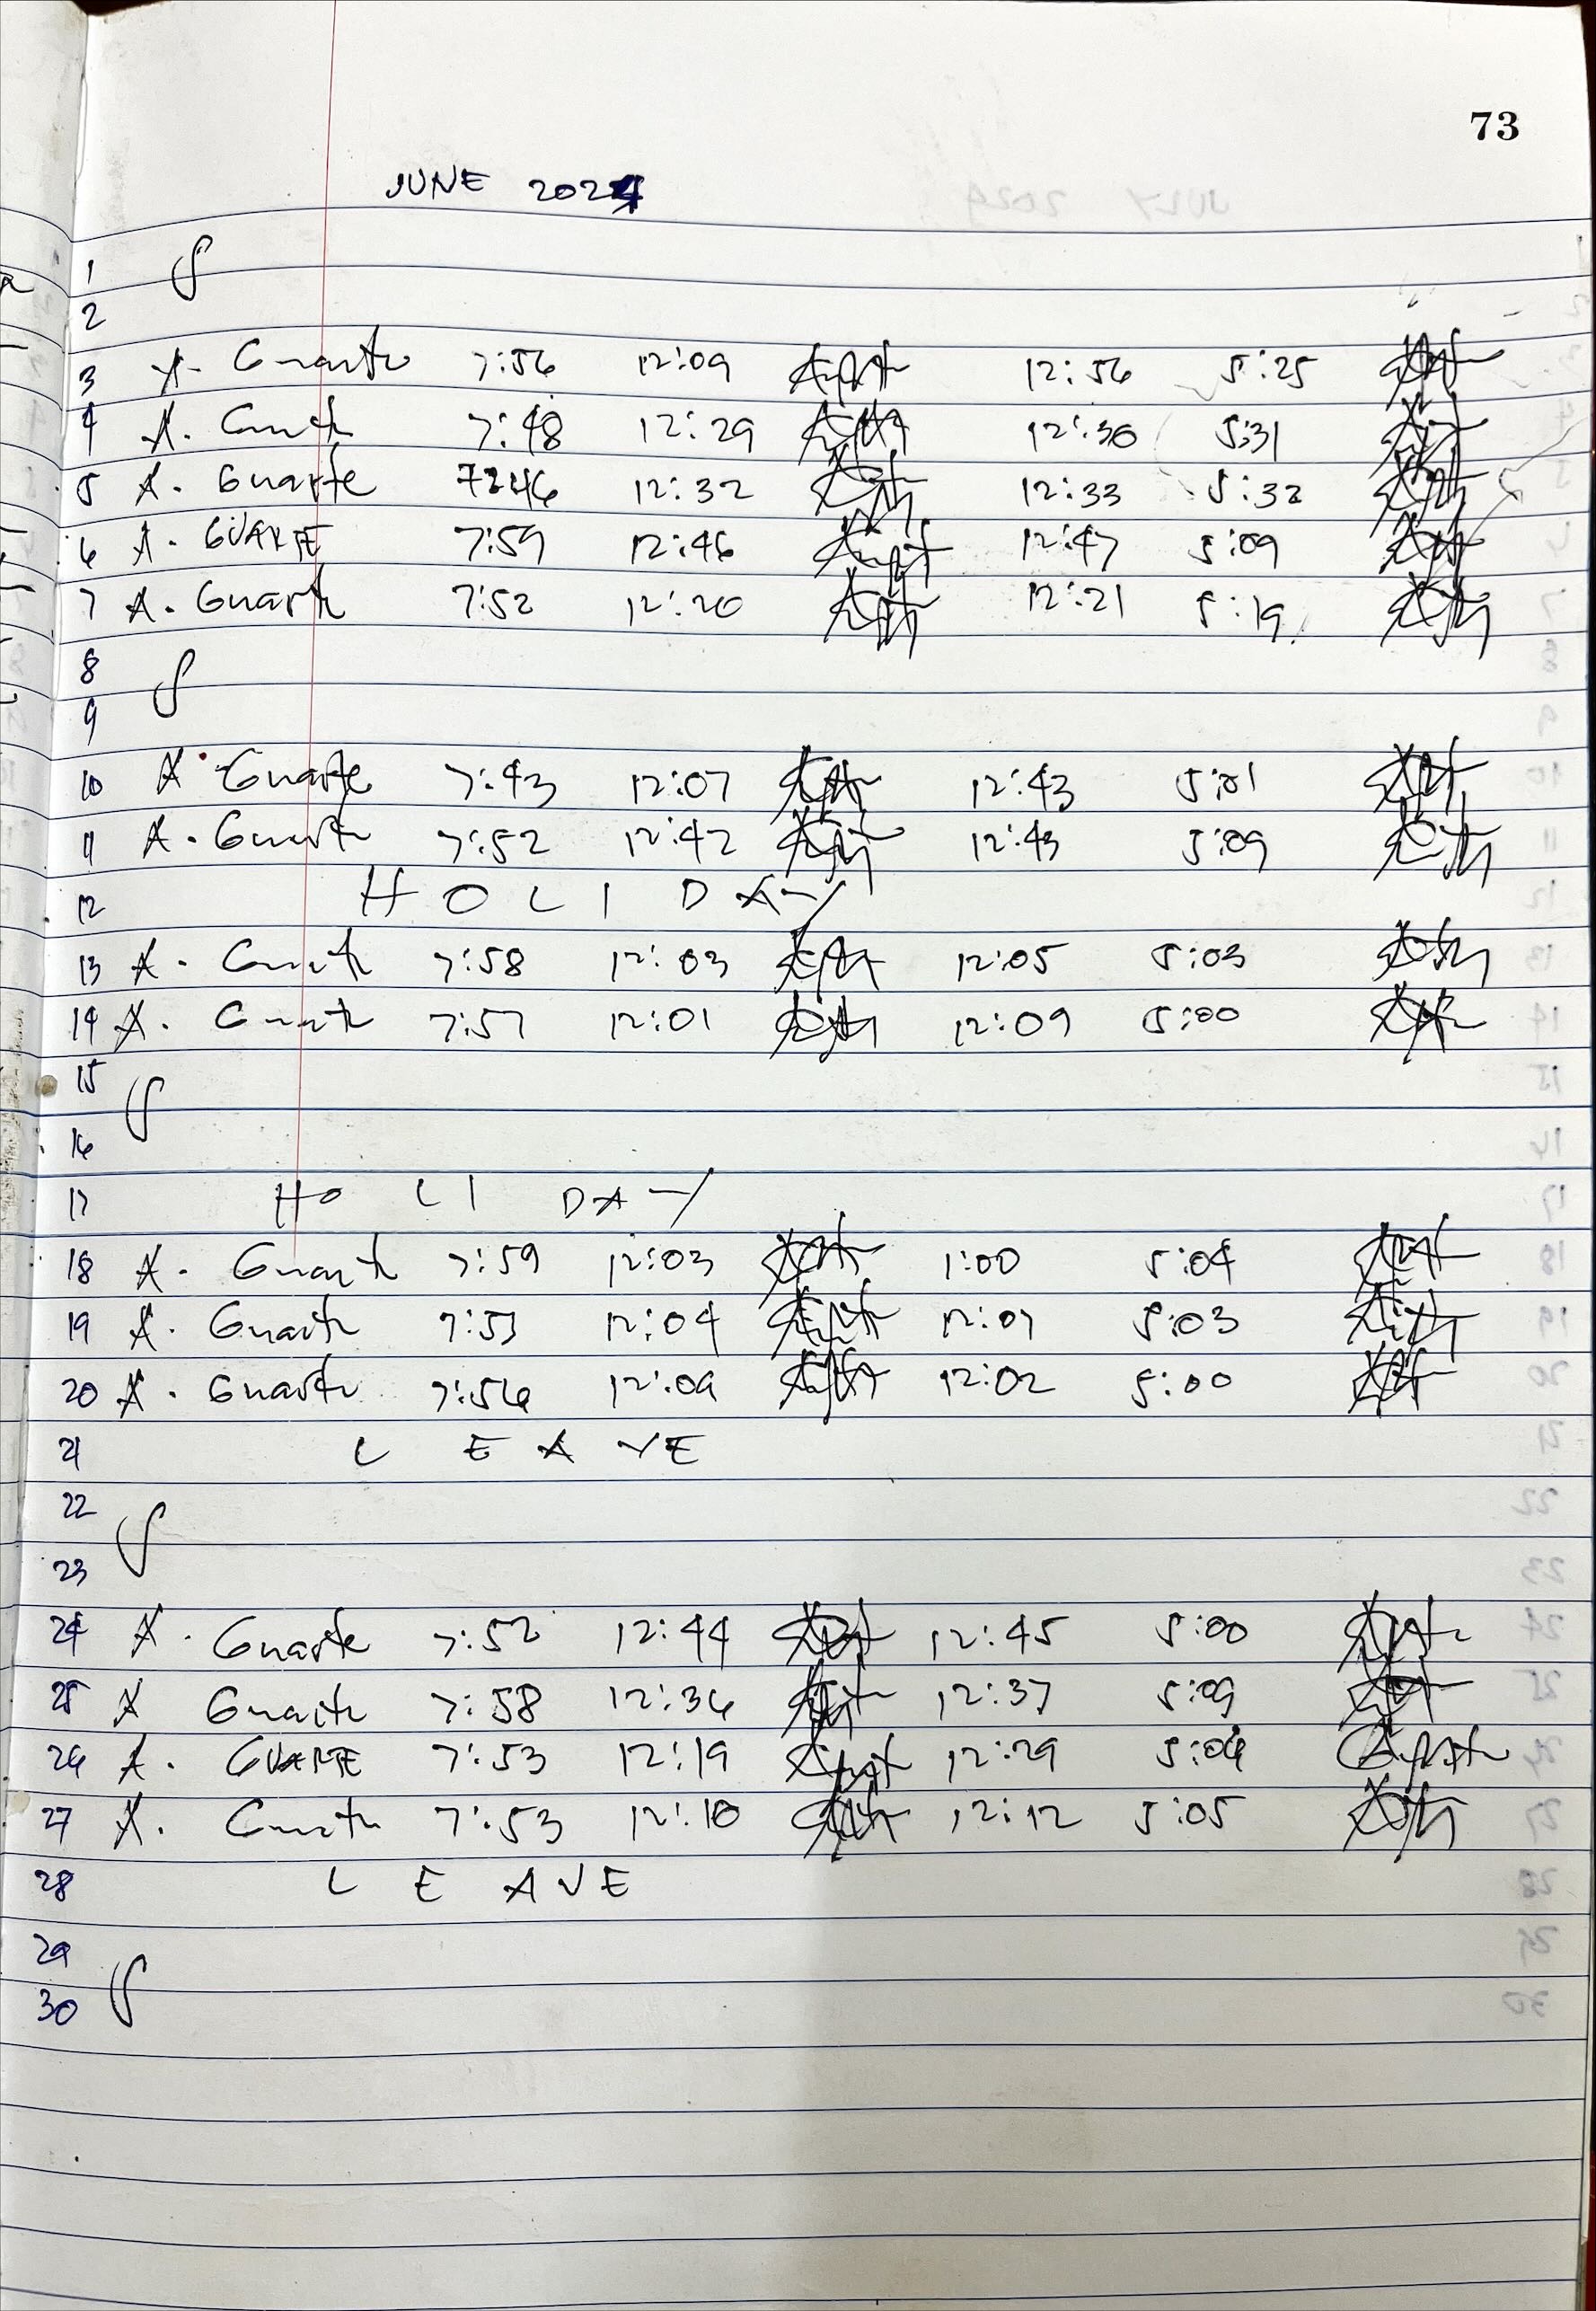 73
JUNE 2024
1 S
2
3 A. Guarte 7:56 12:09 12:56 5:25
4 A. Guarte 7:48 12:29 12:30 5:31
5 A. Guarte 7:46 12:32 12:33 5:32
6 A. GUARTE 7:59 12:46 12:47 5:09
7 A. Guarte 7:52 12:20 12:21 5:19
8 S
9
10 A. Guarte 7:43 12:07 12:43 5:01
11 A. Guarte 7:52 12:42 12:43 5:09
12 HOLIDAY
13 A. Guarte 7:58 12:03 12:05 5:03
14 A. Guarte 7:57 12:01 12:09 5:00
15 S
16
17 HOLIDAY
18 A. Guarte 7:59 12:03 1:00 5:04
19 A. Guarte 7:53 12:04 12:07 5:03
20 A. Guarte 7:56 12:09 12:02 5:00
21 LEAVE
22 S
23
24 A. Guarte 7:52 12:44 12:45 5:00
25 A Guarte 7:58 12:36 12:37 5:09
26 A. GUARTE 7:53 12:19 12:29 5:06
27 A. Guarte 7:53 12:10 12:12 5:05
28 LEAVE
29 S
30